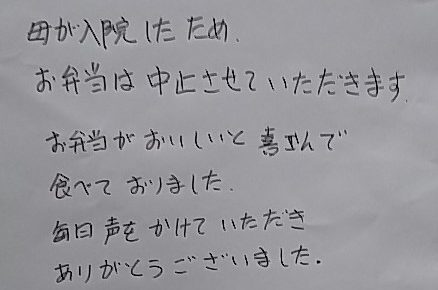 母が入院したため.
お弁当は中止させていただきます.
お弁当がおいしいと喜んで
食べておりました.
毎日声をかけていただき
ありがとうございました.